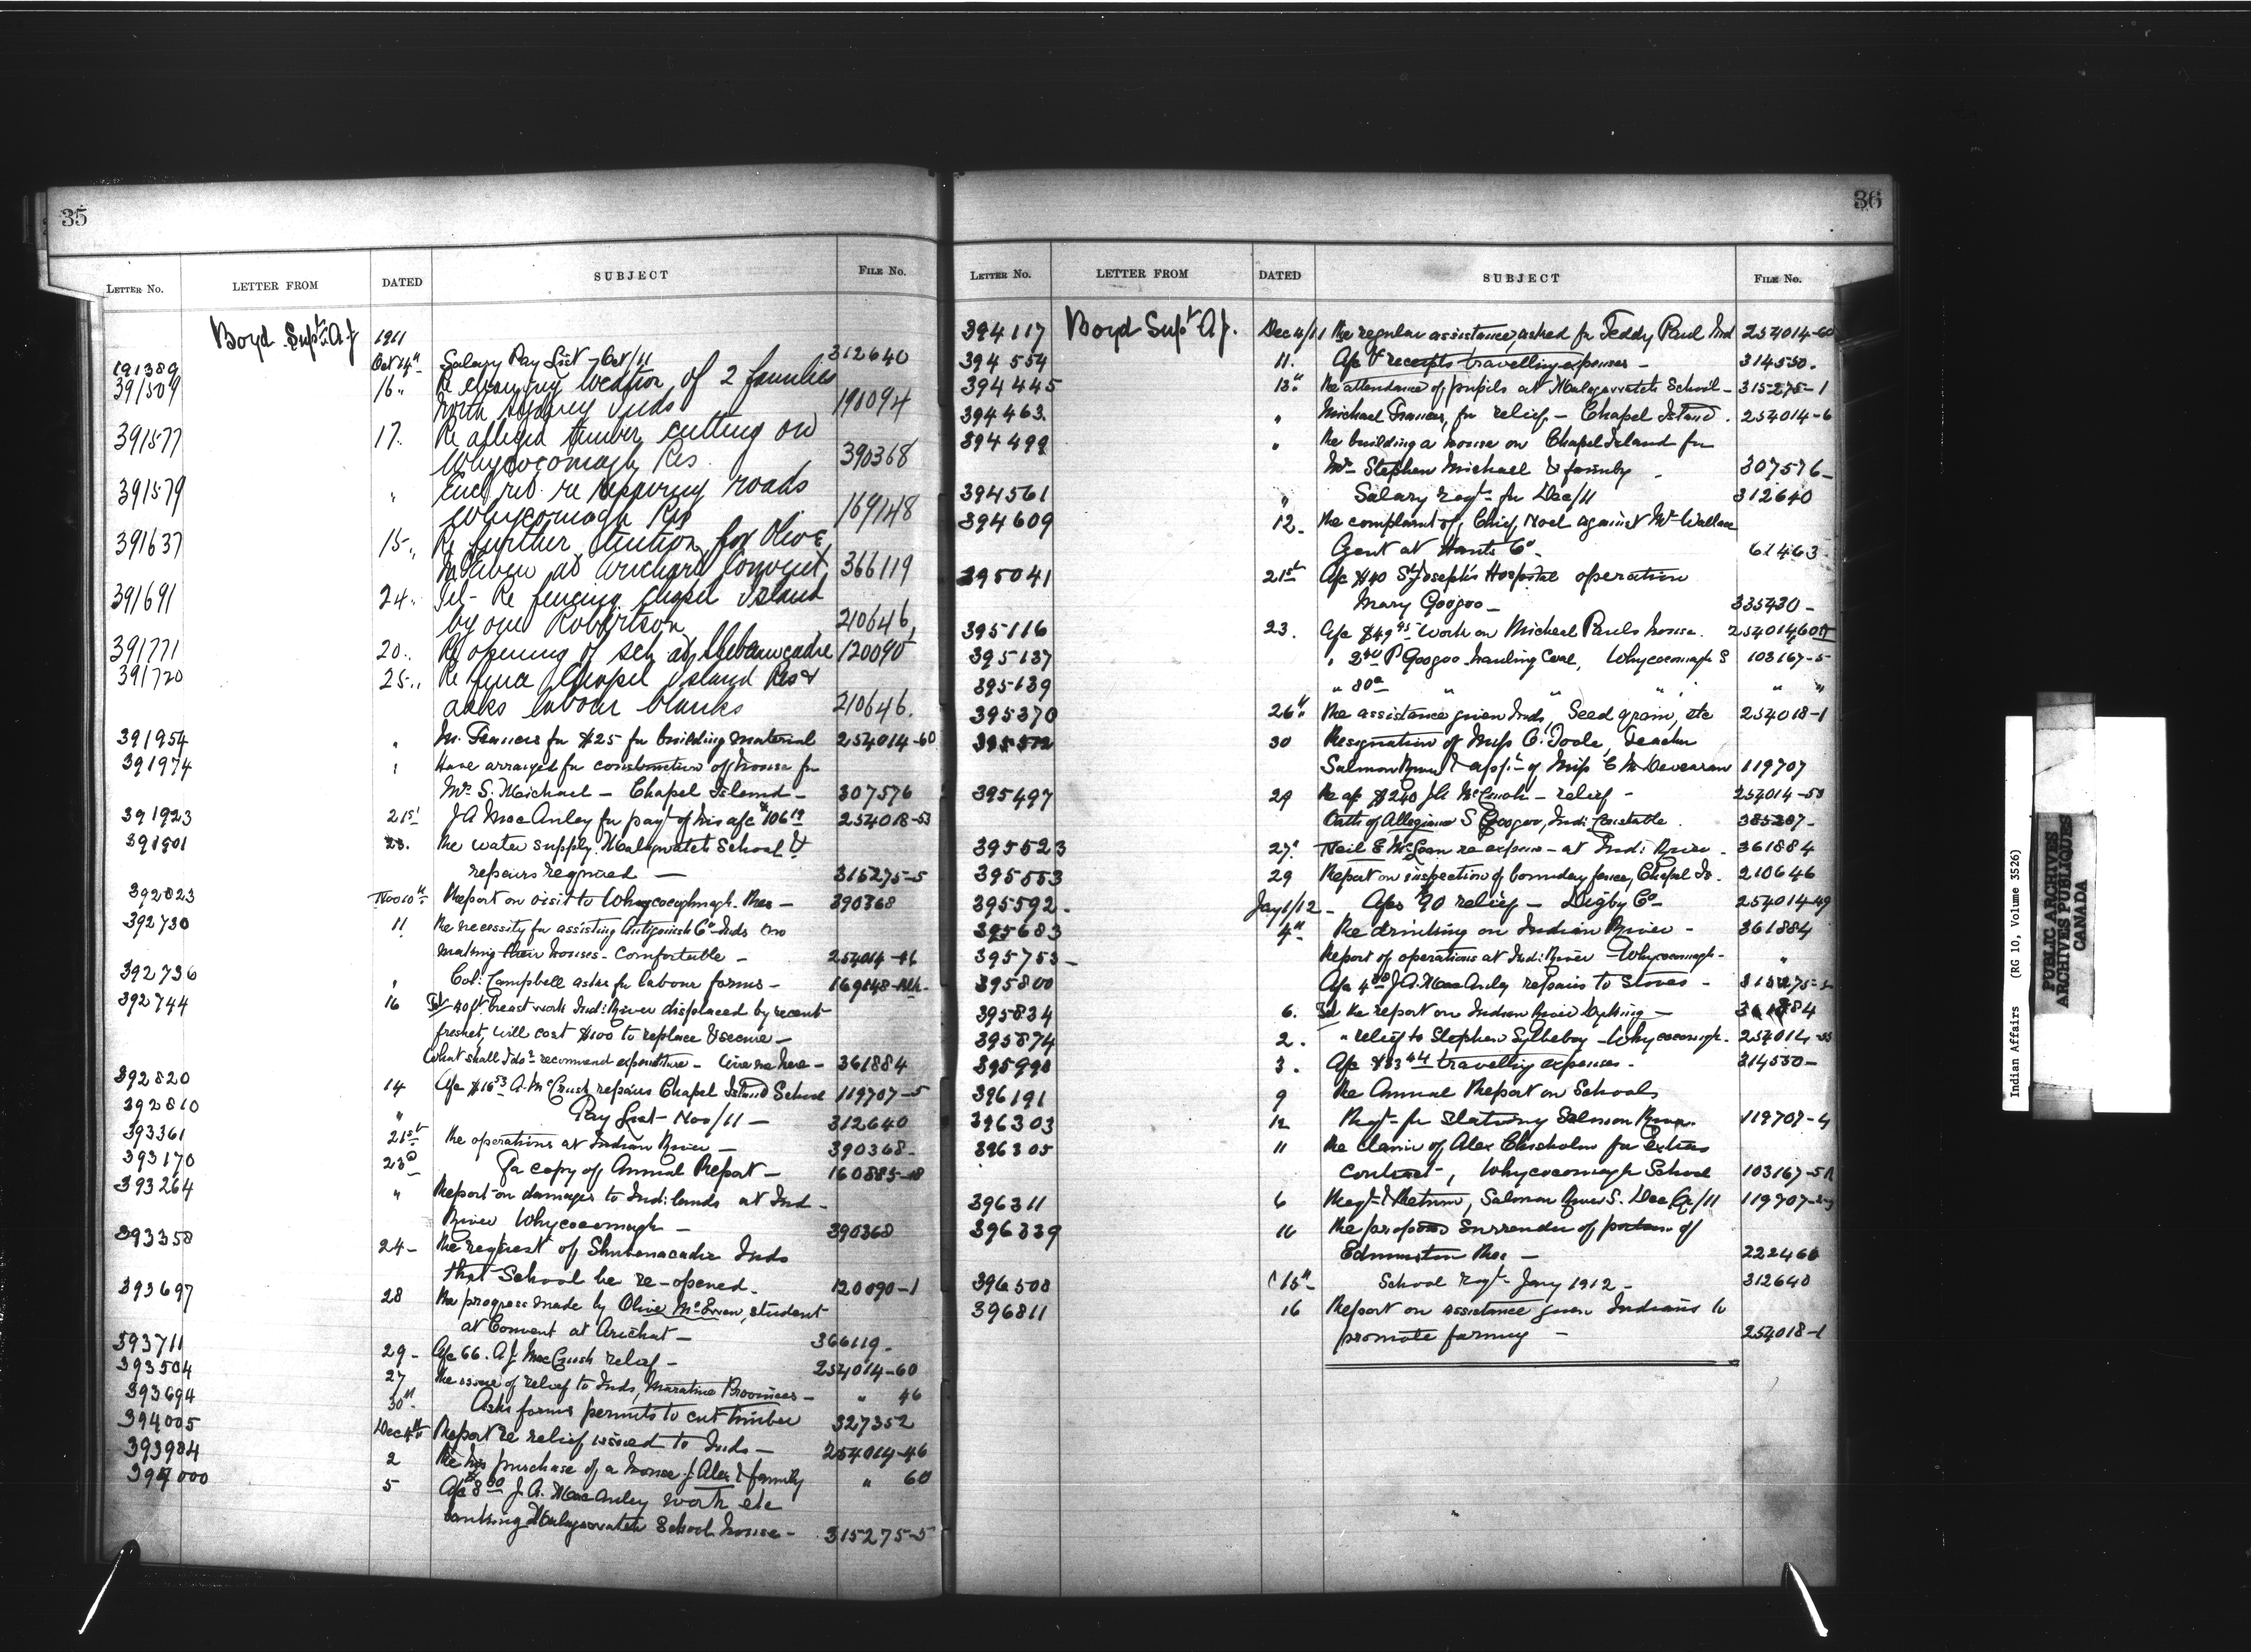 35
LETTER NO. LETTER FROM DATED SUBJECT FILE NO.
Boyd Supt. A J 1911
191389 Oct 14" Salary Pay List - Oct/11 312640
391509 16 " Re changing location of 2 families
North Sydney Inds 191094
391577 17. Re alleged timber cutting on
Whycocomagh Res 390368
391579 " re repairing roads
Whycocomagh Res 169148
391637 15 " Re further tuition for Olive
McEwen at Arichat Convent 366119
391691 24 " Tel - Re fencing Chapel Island
by one Robertson 210646
391771 20 " Re opening of sch at Shubenacadie 120090
391720 25 " Re fence Chapel Island Res &
asks labour blanks 210646.
391954 " M. Francis for $25 for building material 254014-60
391974 " Have arranged for construction of house for
Mrs S. Michael - Chapel Island - 307576
391923 21st J A MacAuley for payt of his a/c $106 254018-53
391901 23. Re water supply Malagawatch School &
repairs required - 315275-5
392823 Nov 10th Report on visit to Whycocomagh Res - 390368
392730 11 Re necessity for assisting Antigonish Co Inds in
making their houses comfortable - 254014-46
392736 " Col: Campbell asks for labour forms - 169148
392744 16 Tel 40 ft. breast work Ind: River displaced by recent
freshet, will cost $100 to replace & secure -
What shall I do? recommend expenditure - Wire me here - 361884
392820 14 A/c $16 53 A. McCuish repairs Chapel Island School 119707-5
392810 " Pay List - Nov/11 - 312640
393361 21st Re operations at Indian River - 390368-
393170 23d copy of Annual Report - 160885-18
393264 " Report on damages to Ind: lands at Ind -
River Whycocomagh - 390368
393358 24 - Re request of Shubenacadie Inds
that School be re-opened. 120090-1
393697 28 Re progress made by Olive McEwen, student
at Convent at Arichat - 366119 -
393711 29 - A/c 66. A J. MacCuish relief - 254014-60
393504 27 Re issue of relief to Inds, Maratime Provinces - " 46
393694 30" Asks forms permits to cut timber 327352
394005 Dec 4th Report re relief issued to Inds - 254014-46
393984 2 Re his purchase of a house J. Alex & family " 60
394000 5 A/c $8 00 J. A. MacAuley work etc
banking Malagawatch School house - 315275-5
36
LETTER NO. LETTER FROM DATED SUBJECT FILE NO.
394117 Boyd Supt A J. Dec 4/11 Re regular assistance, asked for Teddy Paul Ind 254014-60
394554 11. A/c & receipts travelling expenses - 314550.
394445 13" Re attendance of pupils at Malagawatch School - 315275-1
394463. " Michael Francis, for relief - Chapel Island. 254014-6
394499 " Re building a house on Chapel Island for
Mrs Stephen Michael & family - 307576-
394561 " Salary reqt for Dec/11 312640
394609 12 - Re complaint of Chief Noel against Mr Wallace
Agent at Hants Co. 61463
395041 21st A/c $40 St Joseph's Hospital operation
Mary Googoo - 335430 -
395116 23. A/c $49 95 Work on Micheal Pauls house. 254014,60
395137 " P Googoo hauling Coal, Whycocomagh S 103167-5
395139 " 80 " " " " "
395370 26" Re assistance given Inds, Seed grain, etc 254018-1
30 Resignation of Miss C. Toole, Teacher
Salmon River & appt of Miss C McDevearan 119707
395497 29 Re a/c $240 - relief - 254014-53
Oath of Allegiance S Googoo, Ind: Constable. 385287-
395523 27" Neil E McLean re expenses - at Ind: River. 361884
395553 29 Report on inspection of boundary fences, Chapel Is. 210646
395592 - Jany 1/12 - A/cs $90 relief - Digby Co - 254014-49
395683 4" Re drinking on Indian River - 361884
395753 - Report of operations at Ind: River - Whycocomagh - "
395800 A/c J. A. MacAuley repairs to Stoves - 315275-5
395834 6. Re report on Indian River Dyking - 361884
395874 2. " relief to Stephen Sylleboy - Whycocomagh. 254014-53
395990 3. A/c $33 44 travelling expenses - 314550-
396191 9 Re Annual Report on Schools
396303 12 Reqt for Stationery Salmon River. 119707-4
396305 11 Re claim of Alex Chisholm for Extras
contract, Whycocomagh School 103167-5
396311 6 Reqt & Return, Salmon River S. Dec Qr/11 119707
396339 10 Re proposed Surrender of portion of
Edmunston Res - 222460
396508 15" School reqt - Jany 1912 - 312640
396811 16 Report on assistance given Indians to
promote farming - 254018-1
Indian Affairs (RG 10, Volume 3526)
PUBLIC ARCHIVES
ARCHIVES PUBLIQUES
CANADA